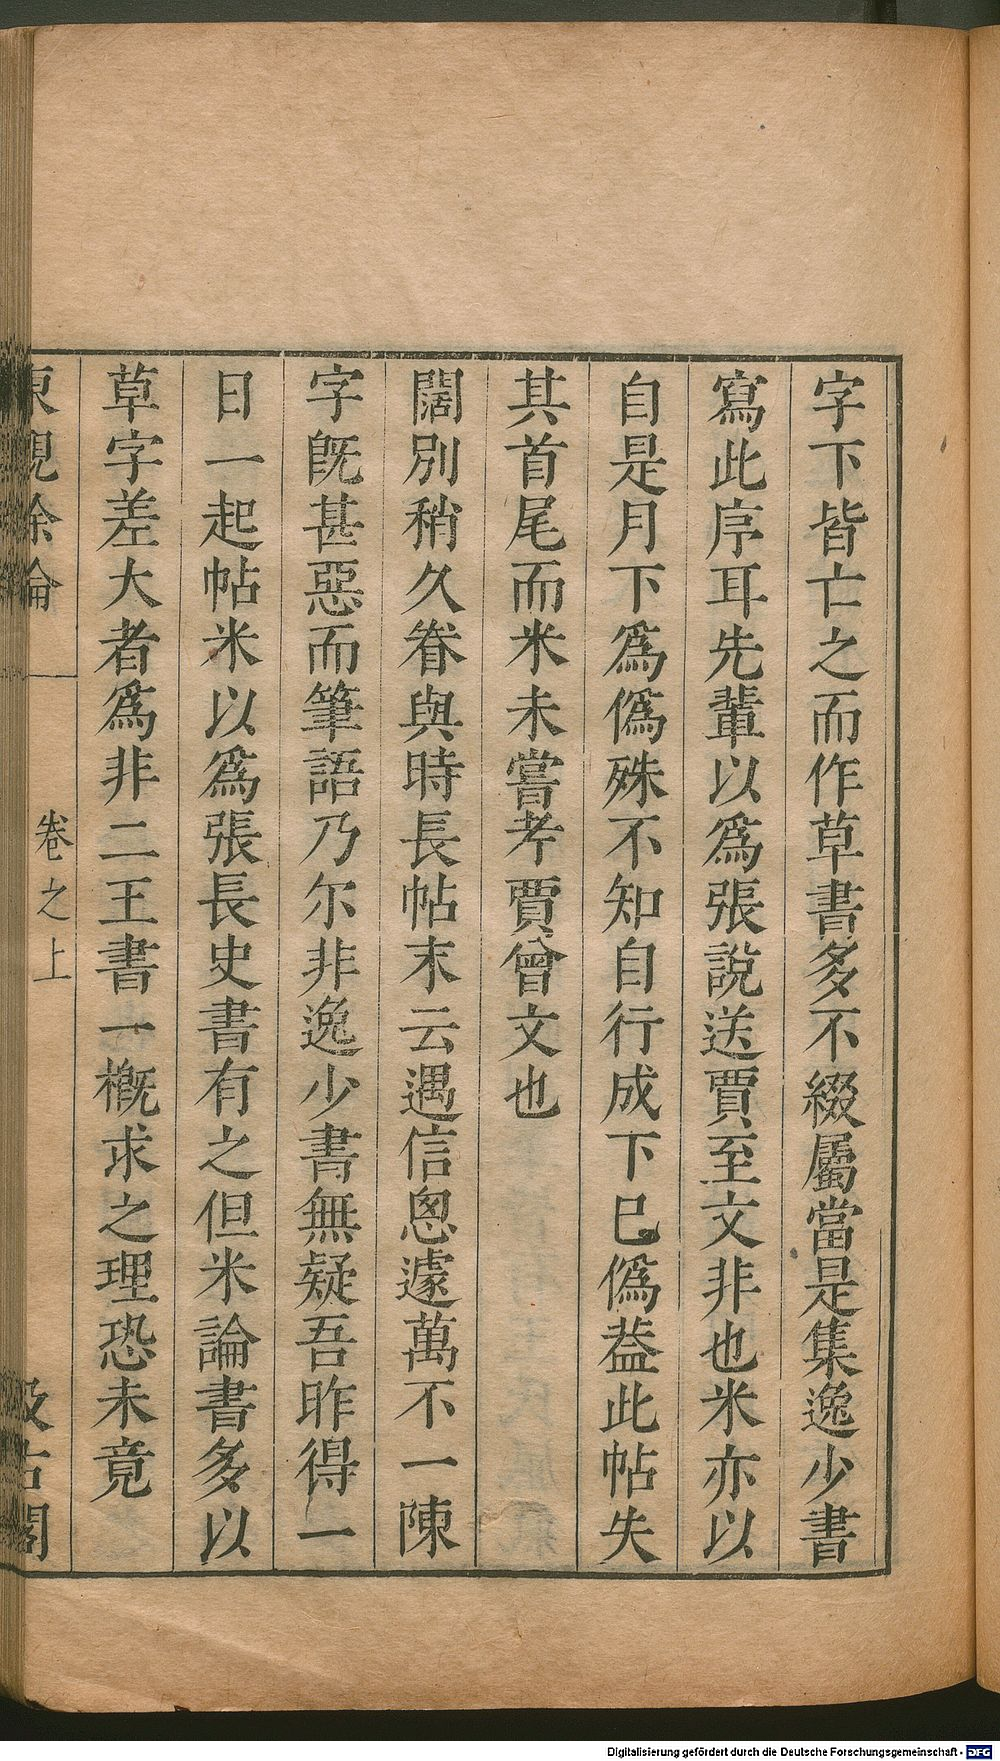 字下皆亡之而作草書多不綴屬當是集逸少書
寫此序耳先輩以爲張說送賈至文非也米亦以
自是月下爲僞殊不知自行成下已僞葢此帖失
其首尾而米未嘗考賈曾文也
闊別稍久眷與時長帖末云遇信悤遽萬不一陳
字旣甚惡而筆語乃尔非逸少書無疑吾昨得一
日一起帖米以爲張長史書有之但米論書多以
草字差大者爲非二王書一槪求之理恐未竟
東觀余侖
卷之上
汲古閣
Digitalisierung gefördert durch die Deutsche Forschungsgemeinschaft - DFG